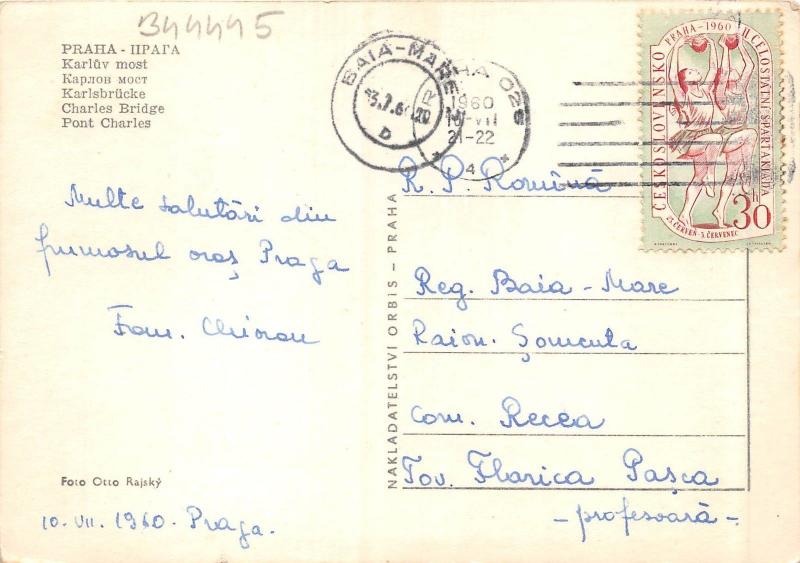 B44445
PRAHA - ПРАГА
Karlův most
Карлов мост
Karlsbrücke
Charles Bridge
Pont Charles
Multe salutări din
frumosul oraș Praga
Fam.
Foto Otto Rajský
10. VII. 1960. Praga.
NAKLADATELSTVÍ ORBIS – PRAHA
BAIA-MARE
D
HA 025
1960
VII
21-22
* 4 *
ČESKOSLOVENSKO
PRAHA-1960
II. CELOSTÁTNÍ SPARTAKIÁDA
23. ČERVEN-3. ČERVENEC
30
R. P. Română
Reg. Baia - Mare
Raion. Șomcuta
Com. Recea
Tov. Florica Pașca
- profesoară -